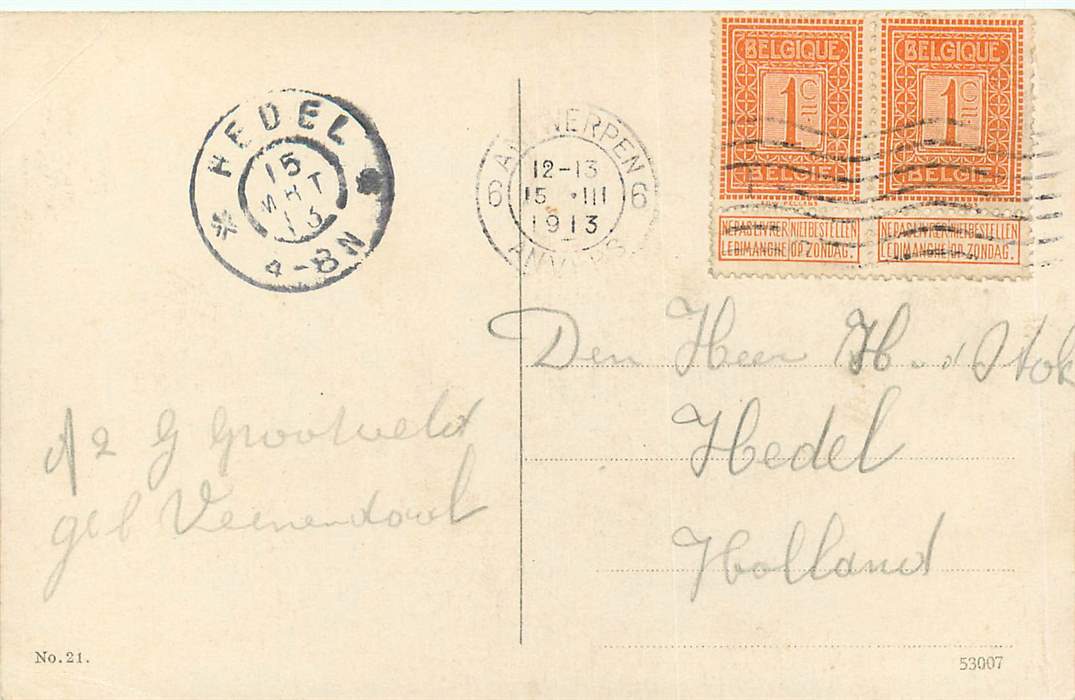 BELGIQUE
1 C
BELGIE
NE PAS LIVRER NIET BESTELLEN
LE DIMANCHE OP ZONDAG.
BELGIQUE
1 C
BELGIE
NE PAS LIVRER NIET BESTELLEN
LE DIMANCHE OP ZONDAG.
HEDEL
15
MRT
13
4-8N
ANTWERPEN
12-13
6 15 III 6
1913
ANVERS
Den Heer H. d Stok
Hedel
Holland
G Grootveld
geb Veenendaal
No. 21.
53007